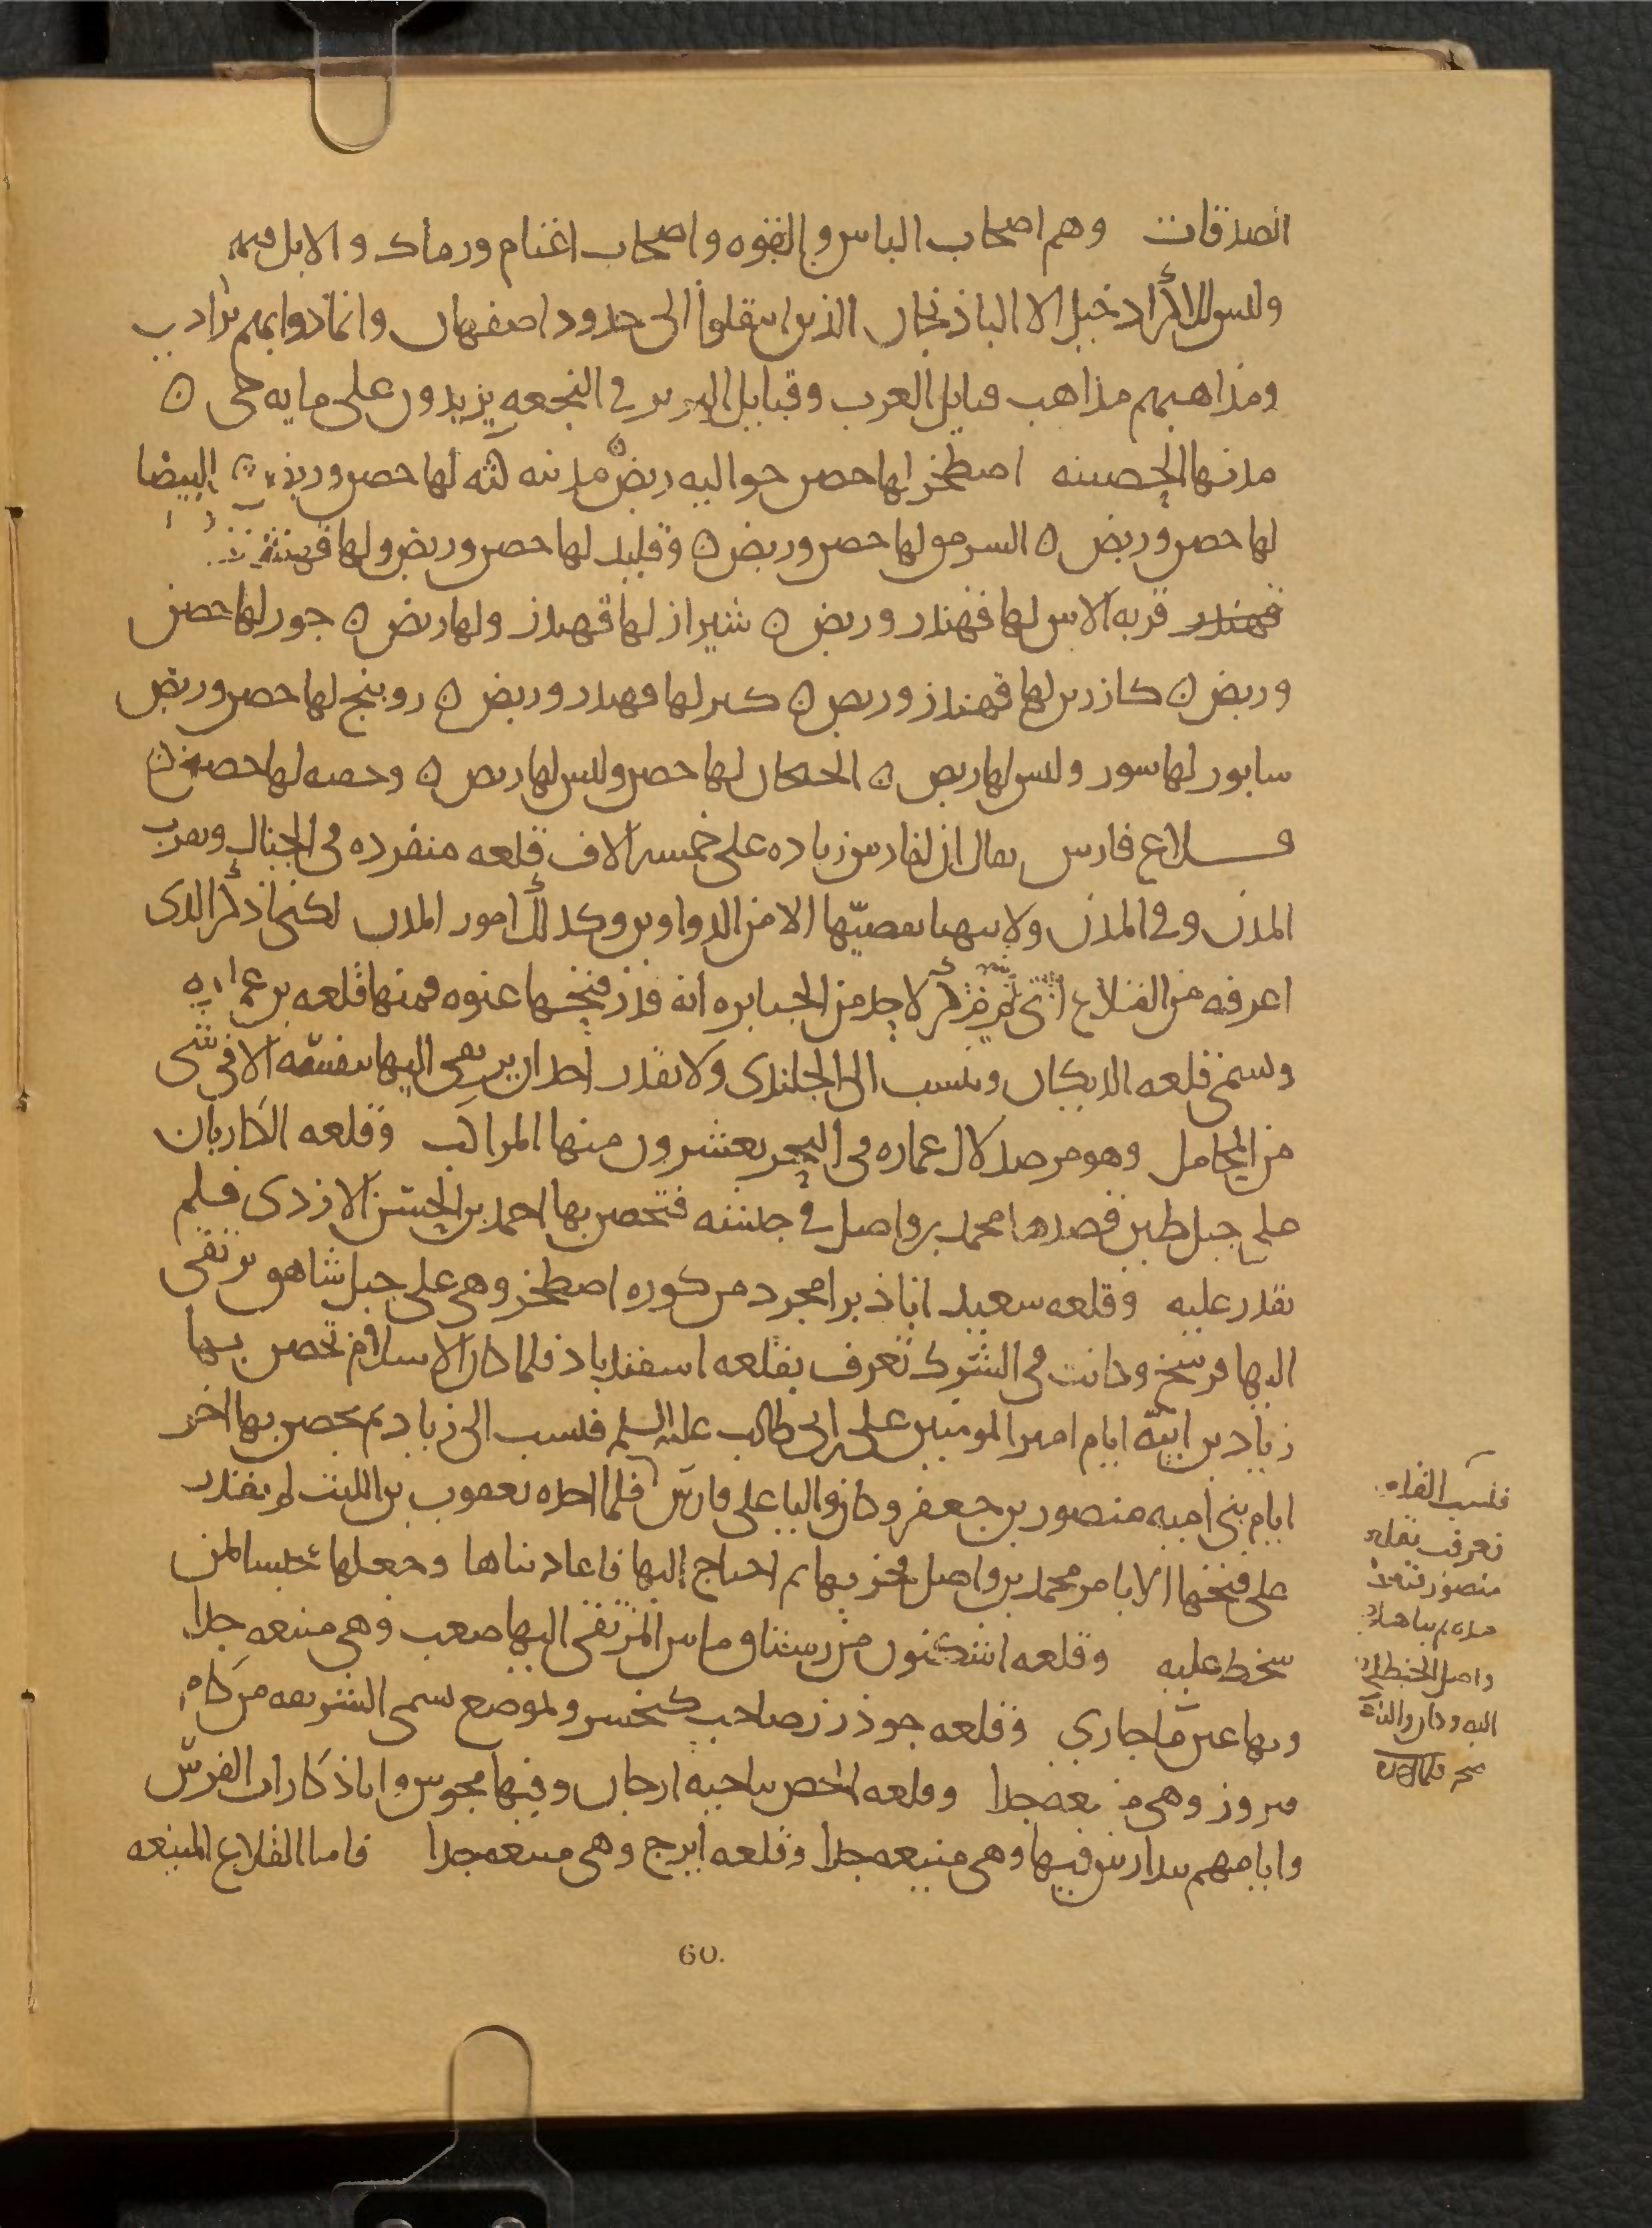 الصدقات وهم اصحاب الباس والقوه واصحاب اغنام ورماك والابل فيهم
وليس للاكراد خيل الا الباذنجان الذين انتقلوا الى حدود اصفهان وانما دوابهم براذين
ومذاهبهم مذاهب قبايل العرب وقبايل البربر في النجعه يزيدون على مايه حي ه
مدنها الحصينه اصطخر لها حصن حواليه ربض ه مدينه كثه لها حصن وربض ه البيضا
لها حصن وربض ه السرمق لها حصن وربض ه وقليد لها حصن وربض ولها قهندز
قهندز قريه الاس لها قهندز وربض ه شيراز لها قهندز ولها ربض ه جور لها حصن
وربض ه كازرين لها قهندز وربض ه كير لها قهندز وربض ه روبنج لها حصن وربض
سابور لها سور وليس لها ربض ه الجنجان لها حصن وليس لها ربض ه وحصه لها حصن ه
قلاع فارس يقال ان لفارس زياده على خمسه الاف قلعه منفرده في الجبال وبقرب
المدن وفي المدن ولا يتهيا تقصيها الا من الدواوين وكذلك امور المدن لكني اذكر الذى
اعرفه من القلاع التي لم يذكر لاحد من الجبابره انه قدر فتحها عنوه فمنها قلعه بن عماره
وتسمى قلعه الديكان وتنسب الى الجلندى ولا يقدر احد ان يرتقى اليها بنفسه الا في شى
من المحامل وهو مرصد لال عماره في البحر يعشرون منها المراكب وقلعه الكاريان
على جبل طين قصدها محمد بن واصل في جيشه فتحصن بها احمد بن الحسن الازدى فلم
يقدر عليه وقلعه سعيد اباذ برامجرد من كوره اصطخر وهي على جبل شاهق يرتقى
اليها فرسخ وكانت في الشرك تعرف بقلعه اسفندباد فلما كان الاسلام تحصن بها
زياد بن ابيه ايام امير المومنين على بن ابى طالب عليه السلم فنسب الى زياد ثم تحصن بها اخر
ايام بني اميه منصور بن جعفر وكان واليا على فارس فلما احله يعقوب بن الليث لم يقدر
على فتحها الا بامر محمد بن واصل فخربها ثم احتاج اليها فاعاد بناها وجعلها محبسا لمن
سخط عليه وقلعه اشكنون من رستاق ماين المرتقى اليها صعب وهي منيعه جدا
وبها عين ما جارى وقلعه جوذرز صاحب كيخسرو لموضع يسمى الشريعه من كام
فيروز وهي منيعه جدا وقلعه الجص بناحيه ارجان وفيها مجوس واباذكارات الفرس
وايامهم يتدارس فيها وهي منيعه جدا وقلعه ايرج وهي منيعه جدا فاما القلاع المنيعه
فنسبت القلعه
تعرف بقلعه
منصور
واصل الحنظلى
اليه وكان واليا
60.